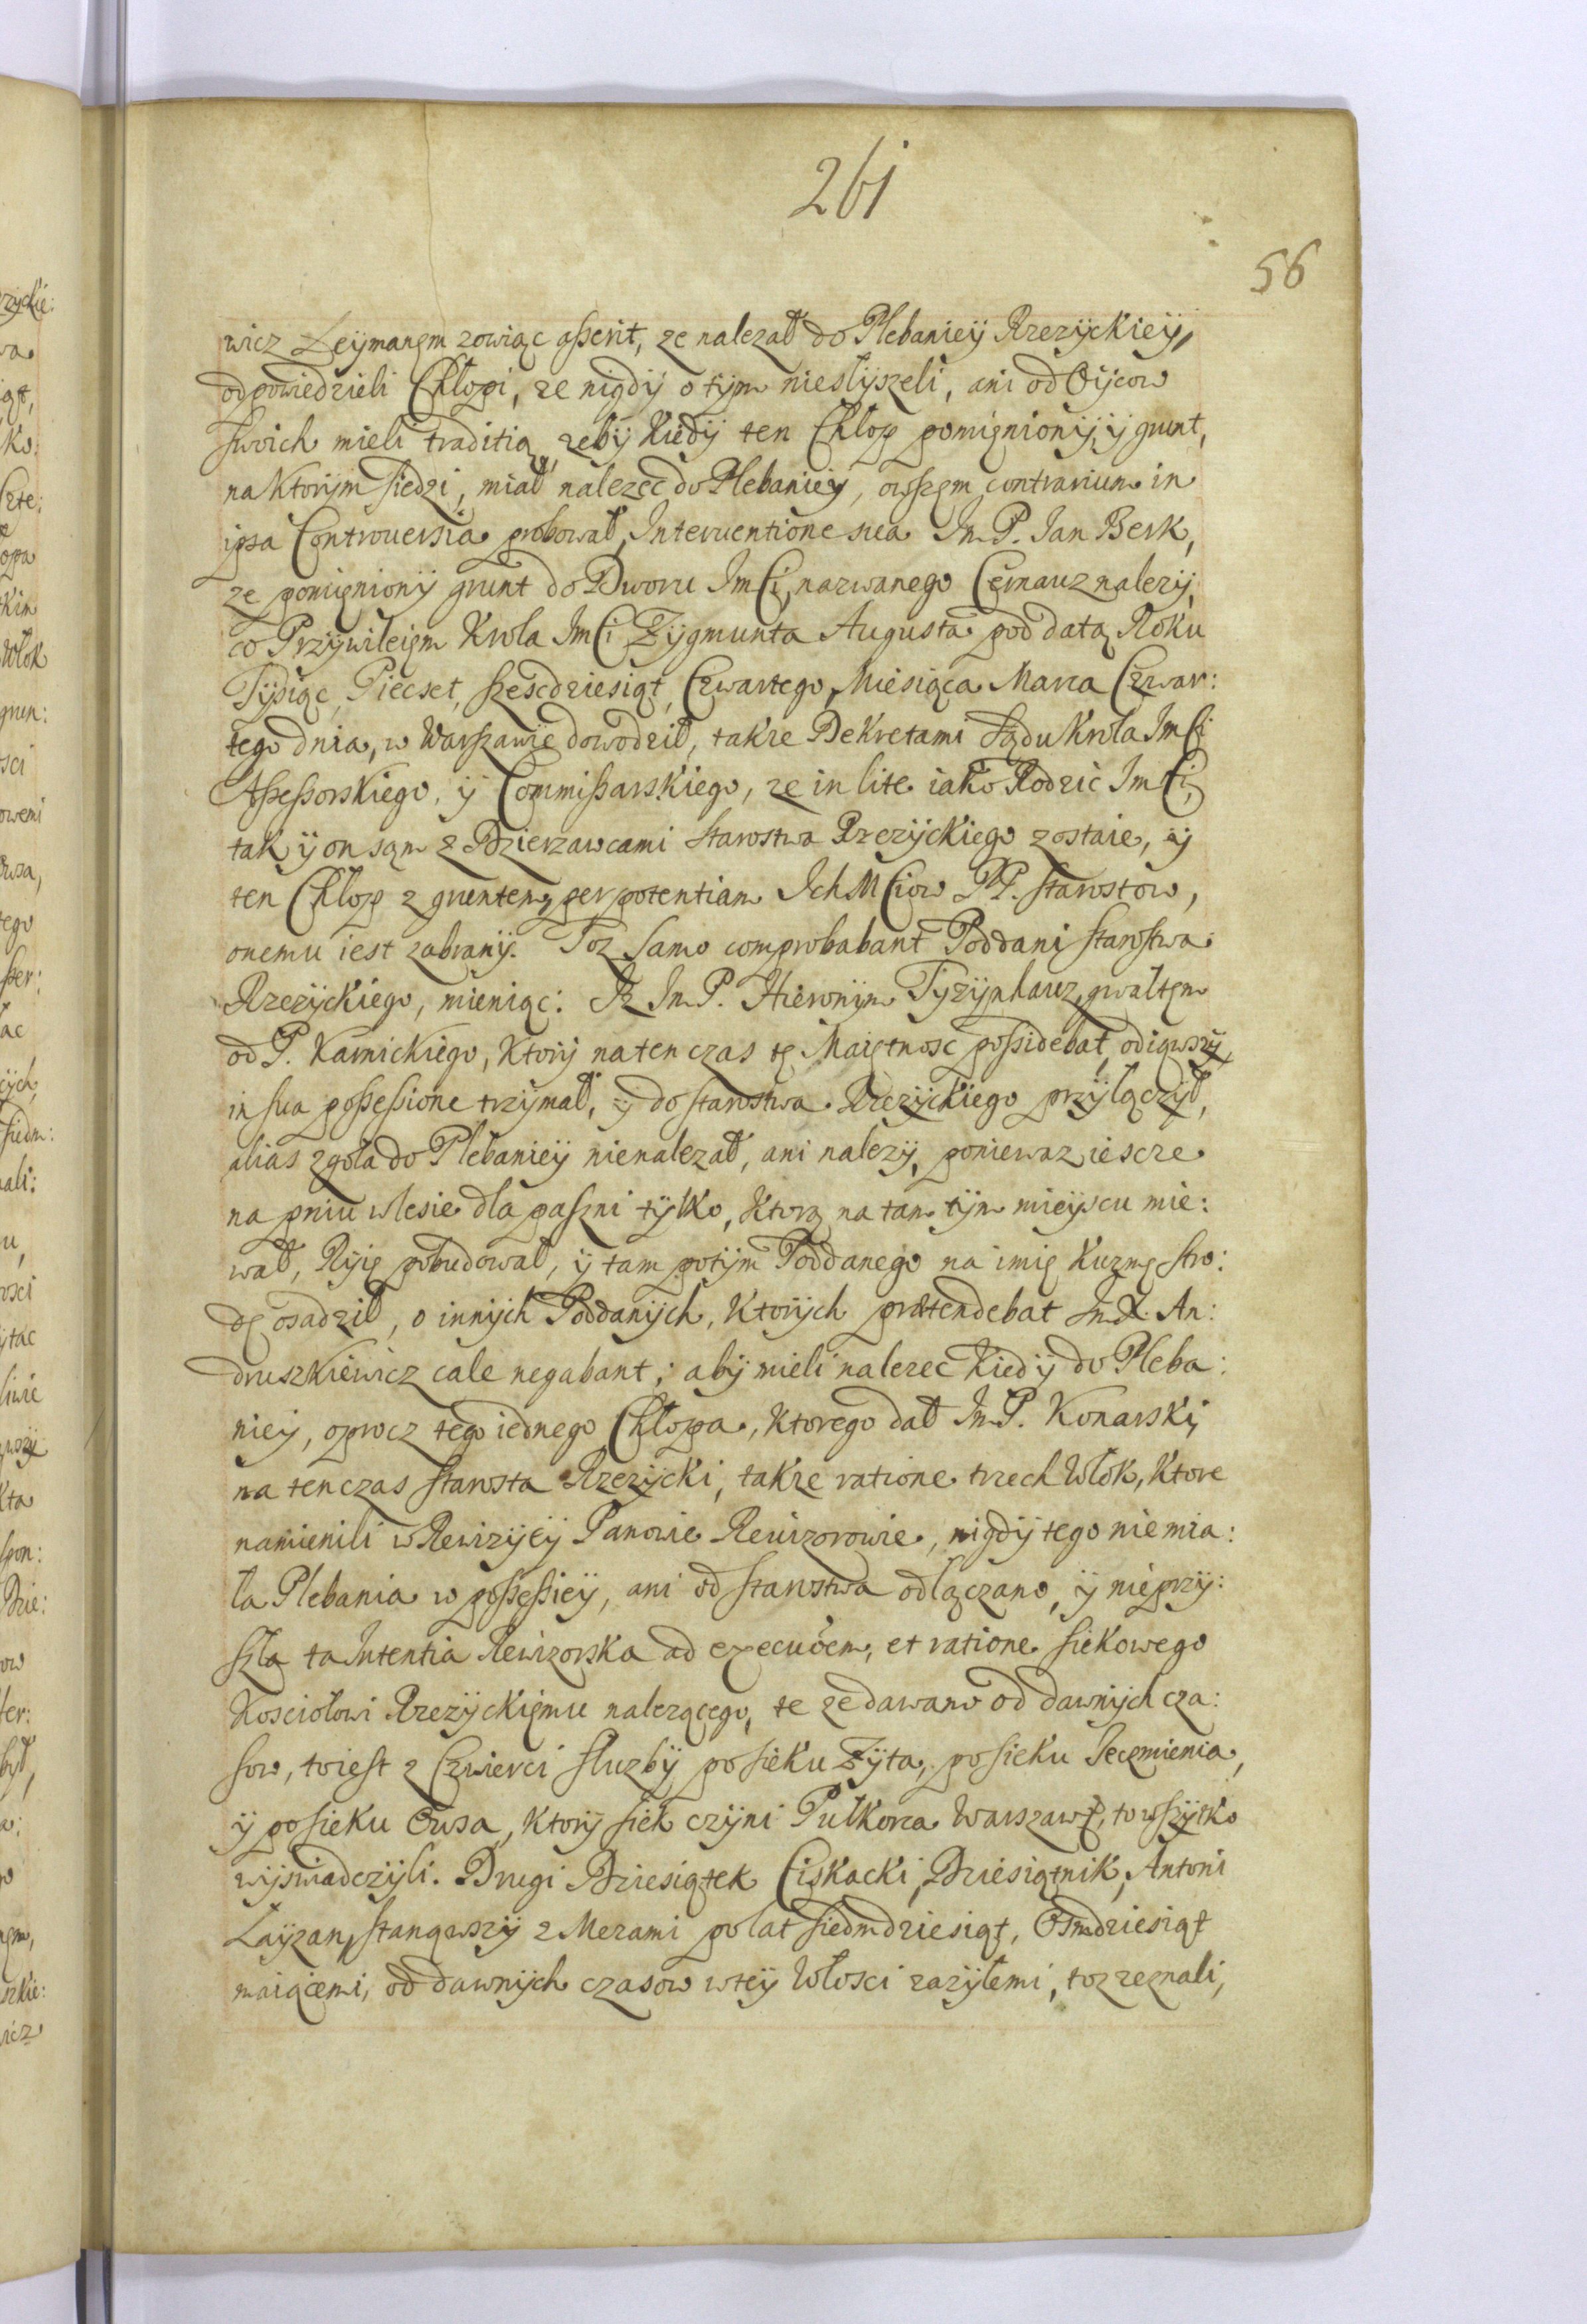 261
56
wicz Leymanęm zowiąc asserit, ze nalezał do Plebaniey Rzezyckiey,
odpowiedzieli Chłopi, ze nigdy o tym niesłyszeli, ani od Oycow
swoich mieli traditią, zeby kiedy ten Chłop pomięniony, y grunt,
na ktorym siedzi, miał nalezec do Plebaniey, owszęm contrarium in
ipsa Controuersia probował, Interuentione sua Im P. Ian Berk,
ze pomięniony grunt do Dworu Im Ci, nazwanego Cernauz nalezy,
co Przywileięm Krola Im Ci Zygmunta Augusta pod datą Roku
Tysiąc, Piecset, szescdziesiąt, Czwartego, Miesiąca Marca Czwar:
tego dnia, w Warszawie dowodził, takze Dekretami Sądu Krola Im Ci
Assessorskiego, y Commissarskiego, ze in lite iako Rodzic Im Ci,
tak y on sąm z Dzierzawcami Starostwa Rzezyckiego zostaie, y
ten Chłop z gruntem, per potentiam Ich M Ciow PP. Starostow,
onemu iest zabrany. Toz samo comprobabant Poddani Starostwa
Rzezyckiego, mieniąc: Iz Im P. Hieronym Tyzynhauz, gwałtęm
od P. Karnickiego, ktory na ten czas tę Maiętnosc possidebat, odiąwszy,
in sua possessione trzymał, y do Starostwa Rzezyckiego przyłączył,
alias zgoła do Plebaniey nienalezał, ani nalezy, poniewaz iescze
na pniu w lesie dla paszni tylko, ktorą na tam tym mieyscu mie:
wał, Ryię pobudował, y tam potym Poddanego na imię Kuzmę Stro:
dę osadził, o innych Poddanych, ktorych prætendebat Im X. An:
druszkiewicz cale negabant; aby mieli nalezec kiedy do Pleba:
niey, oprocz tego iednego Chłopa, ktorego dał Im P. Konarski,
na tenczas Starosta Rzezycki, takze ratione trzech Włok, ktore
namienili w Rewizyey Panowie Rewizorowie, nigdy tego nie mia:
ła Plebania w possessiey, ani od Starostwa odłączano, y nie przy:
szła ta Intentia Rewizorska ad execuõem, et ratione siekowego
Kosciołowi Rzezyckięmu nalezącego, te ze dawano od dawnych cza:
sow, to iest z Czwierci słuzby po sieku Zyta, po sieku Ieczmienia,
y po sieku Owsa, ktory siek czyni Pułkorca Warszaw: to wszytko
wyswiadczyli. Drugi Dziesiątek Ciskacki, Dziesiątnik, Antoni
Layzan, stanąwszy z Mezami po lat siedmdziesiąt, Osmdziesiąt
maiącemi, od dawnych czasow w tey Włosci zazyłemi, toz zeznali,